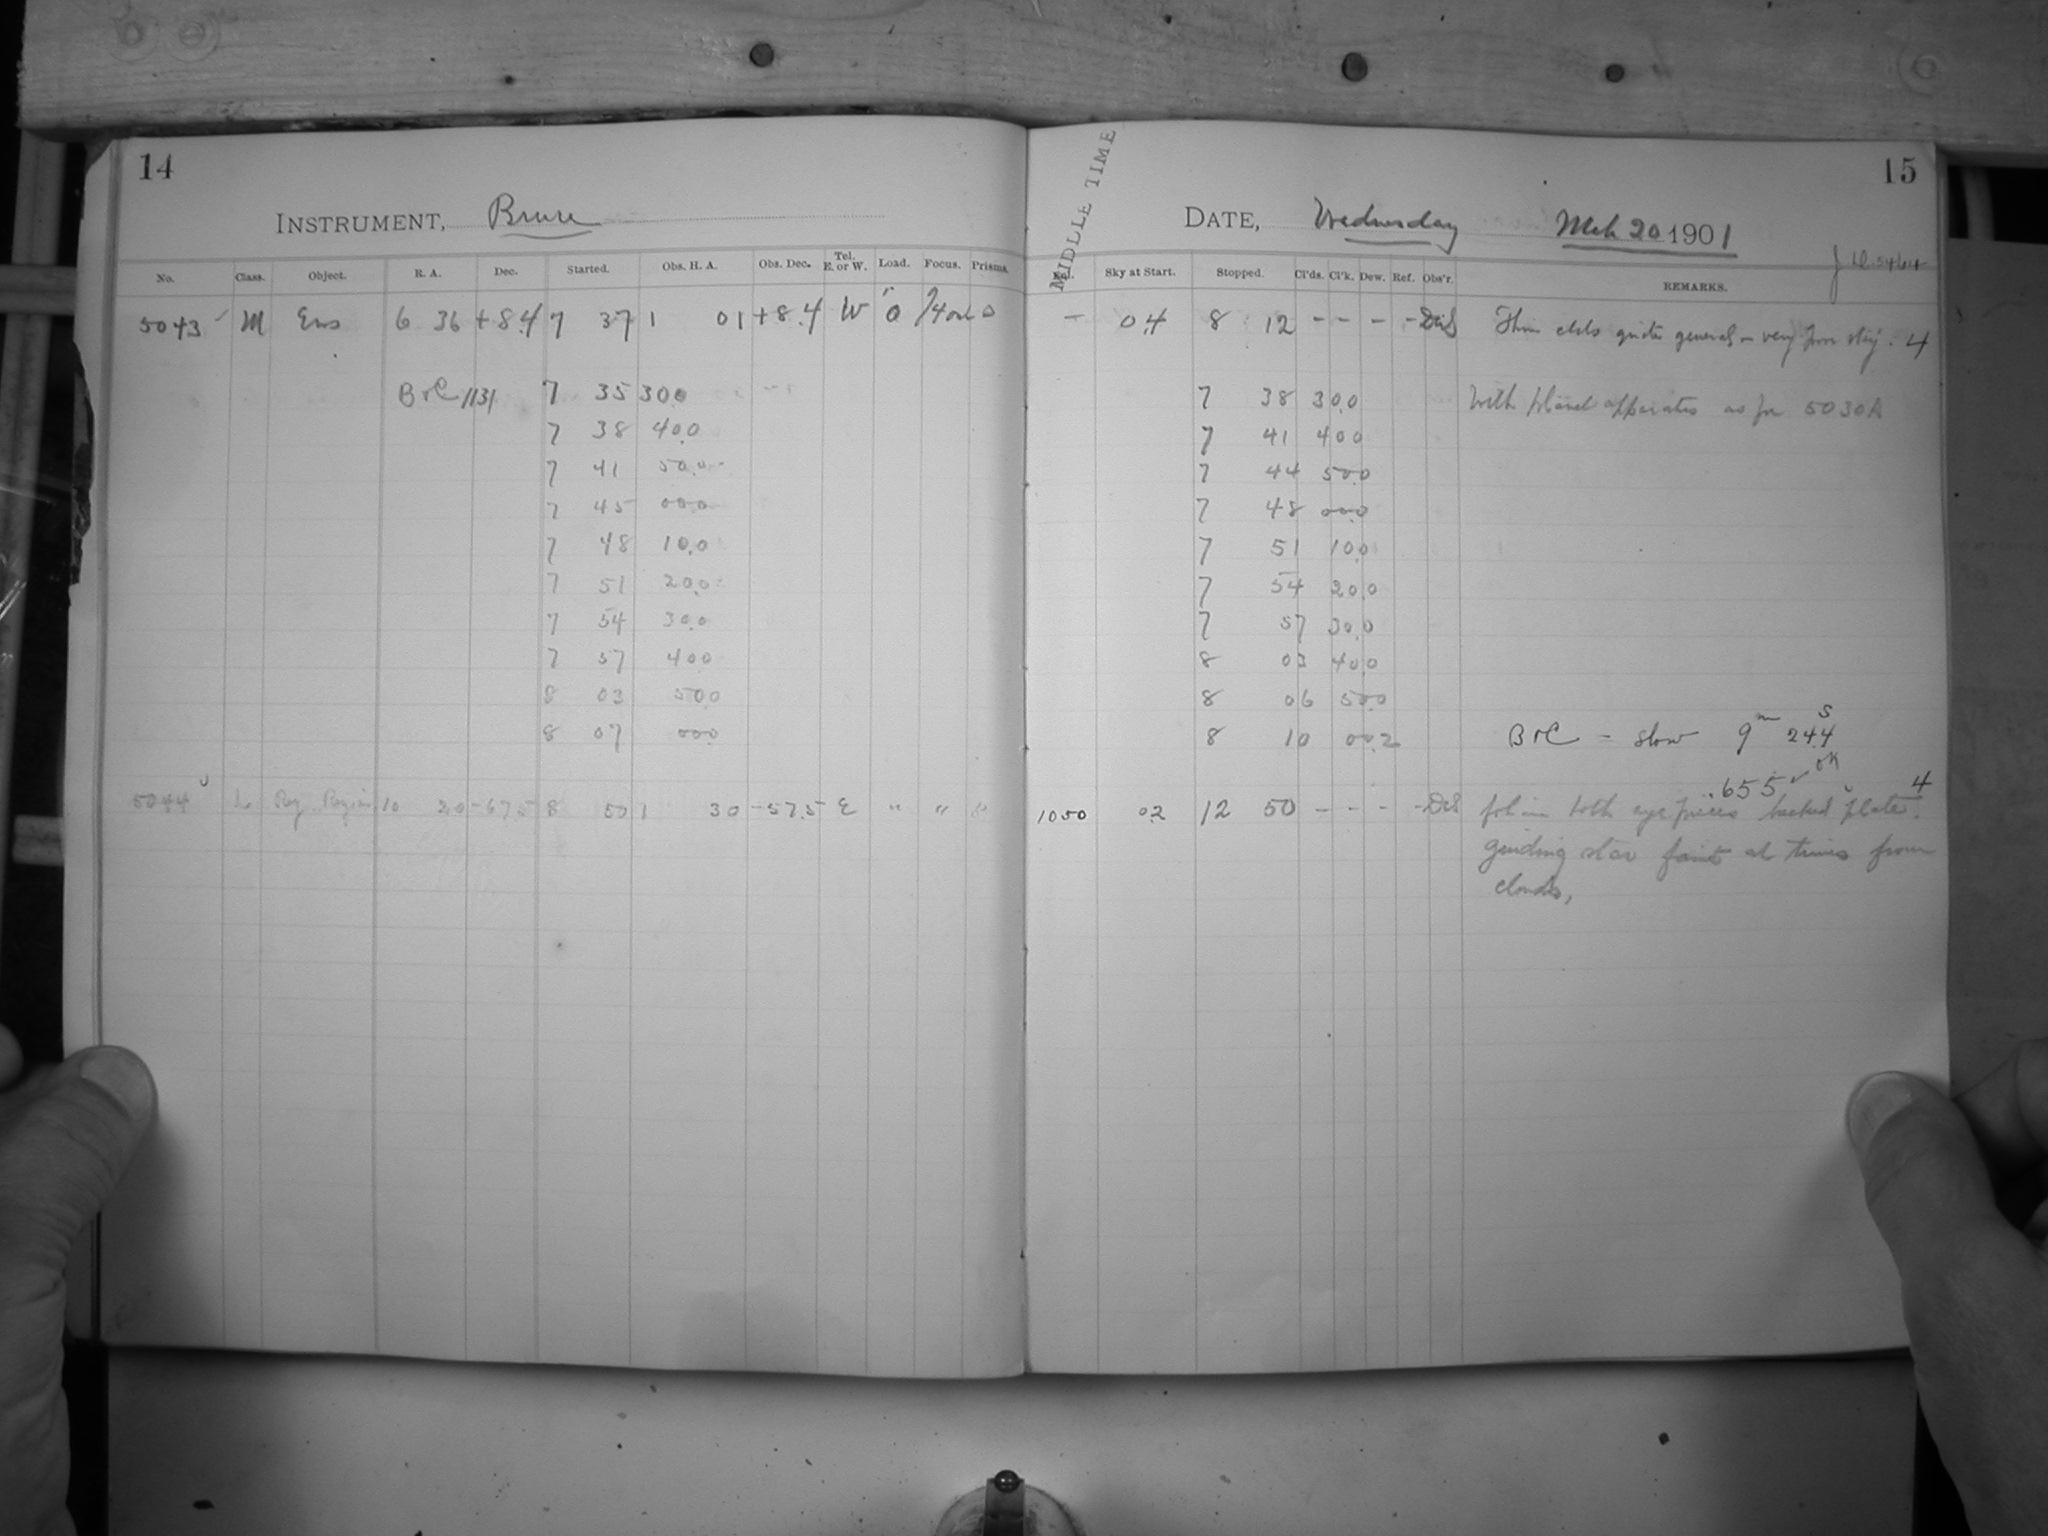 14
INSTRUMENT, Bruce
No. Class. Object. R. A. Dec. Started. Obs. H. A. Obs. Dec. Tel. E. or W. Load. Focus. Prisms.
5043 M Eros 6 36 +8.4 7 37 1 01 +8.4 W 0
B & C 1131 7 35 30.0
7 38 40.0
7 41 50.0
7 45 00.0
7 48 10.0
7 51 20.0
7 54 30.0
7 57 40.0
8 03 50.0
8 07 00.0
5044 L Reg. 10 20 -57.5 8 50 1 30 -57.5 E " "
15
MIDDLE TIME
DATE, Wednesday Mch 20 1901
Sky at Start. Stopped. Cl'ds. Cl'k. Dew. Ref. Obs'r. REMARKS.
— 0.4 8 12 - - - - Thin clds quite general - very poor sky. 4
7 38 30.0 With planet apparatus as for 5030A
7 41 40.0
7 44 50.0
7 48 00.0
7 51 10.0
7 54 20.0
7 57 30.0
8 03 40.0
8 06 50.0
8 10 00.2 B & C - slow 9m 24.4s
.655 ok
1050 02 12 50 - - - - both eye pieces backed plate. 4
guiding star faint at times from
clouds,